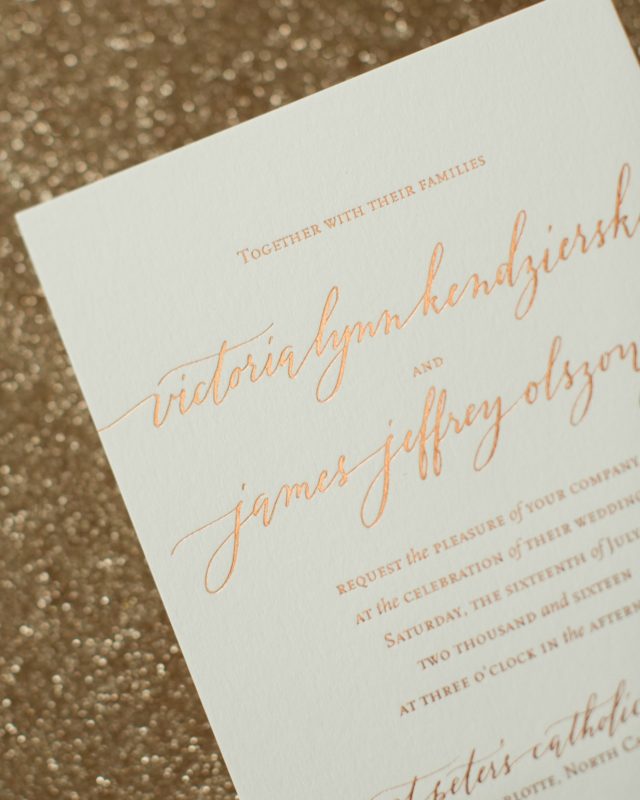 TOGETHER WITH THEIR FAMILIES
victoria lynn kendziersk
AND
james jeffrey olszon
REQUEST the PLEASURE of YOUR COMPANY
AT the CELEBRATION of THEIR WEDDING
SATURDAY, THE SIXTEENTH of JULY
TWO THOUSAND and SIXTEEN
AT THREE O'CLOCK IN the AFTERN
t peter's catholic
RLOTTE, NORTH CA